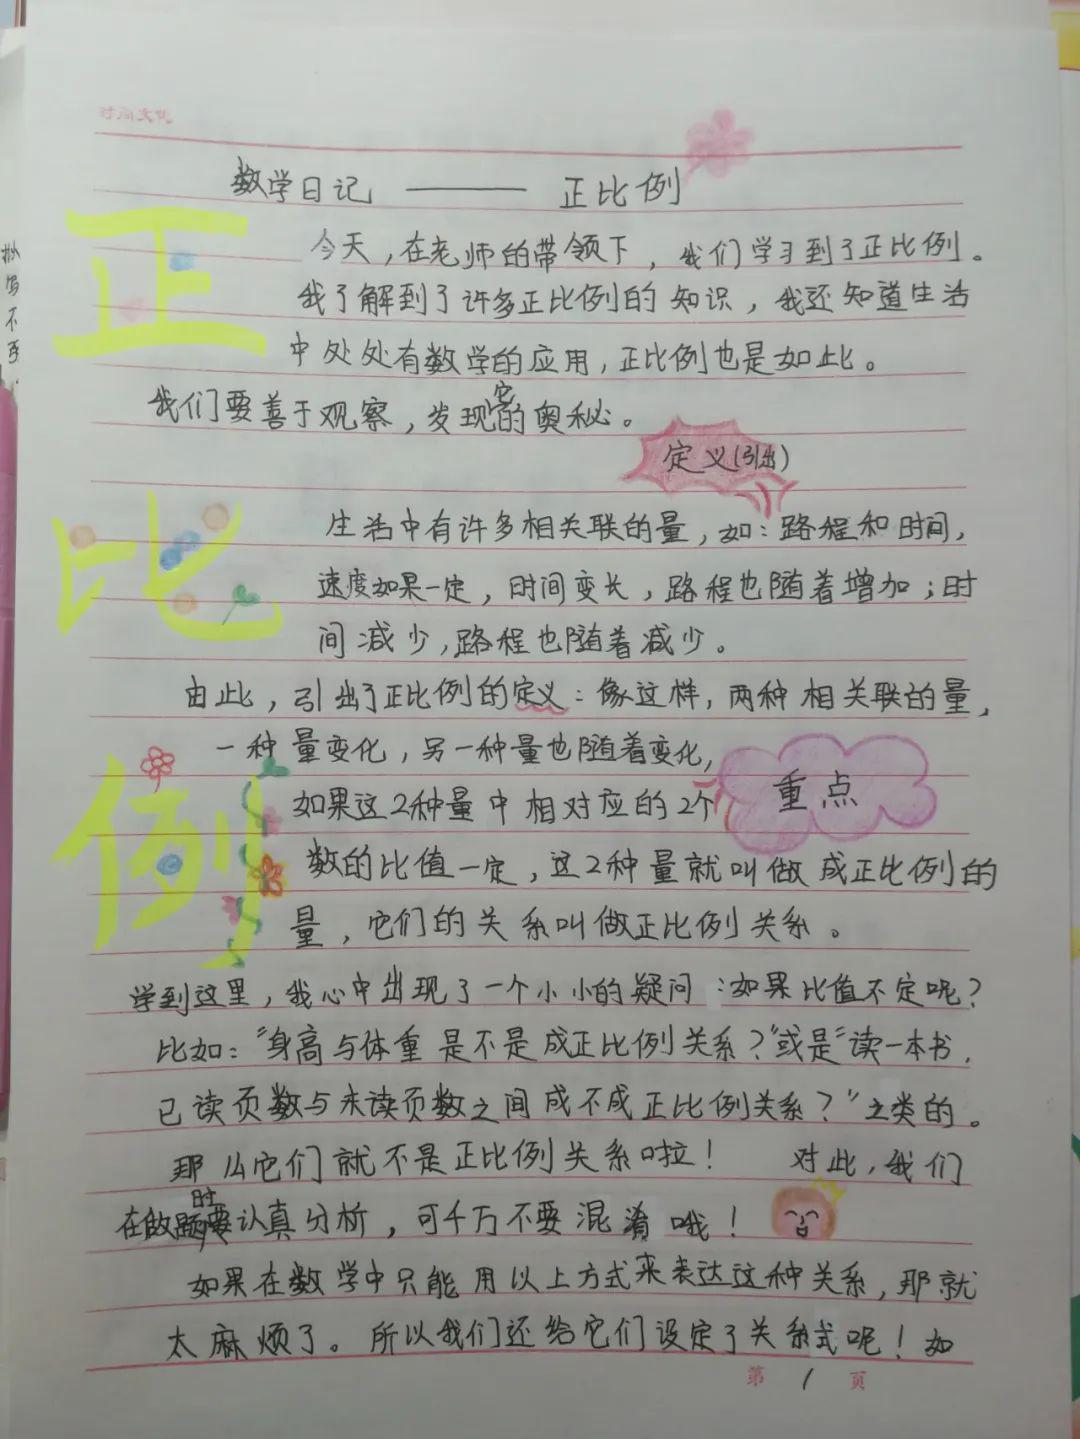 数学日记 —— 正比例
正
今天,在老师的带领下,我们学习到了正比例。
我了解到了许多正比例的知识,我还知道生活
中处处有数学的应用,正比例也是如此。
我们要善于观察,发现它的奥秘。
定义(引出)
比
生活中有许多相关联的量,如:路程和时间,
速度如果一定,时间变长,路程也随着增加;时
间减少,路程也随着减少。
由此,引出了正比例的定义:像这样,两种相关联的量,
一种量变化,另一种量也随着变化,
例
重点
如果这2种量中相对应的2个
数的比值一定,这2种量就叫做成正比例的
量,它们的关系叫做正比例关系。
学到这里,我心中出现了一个小小的疑问:如果比值不定呢?
比如:“身高与体重是不是成正比例关系?”或是“读一本书,
已读页数与未读页数之间成不成正比例关系?”之类的。
那么它们就不是正比例关系啦! 对此,我们
在做题时要认真分析,可千万不要混淆哦!
如果在数学中只能用以上方式来表达这种关系,那就
太麻烦了。所以我们还给它们设定了关系式呢!如
第 1 页